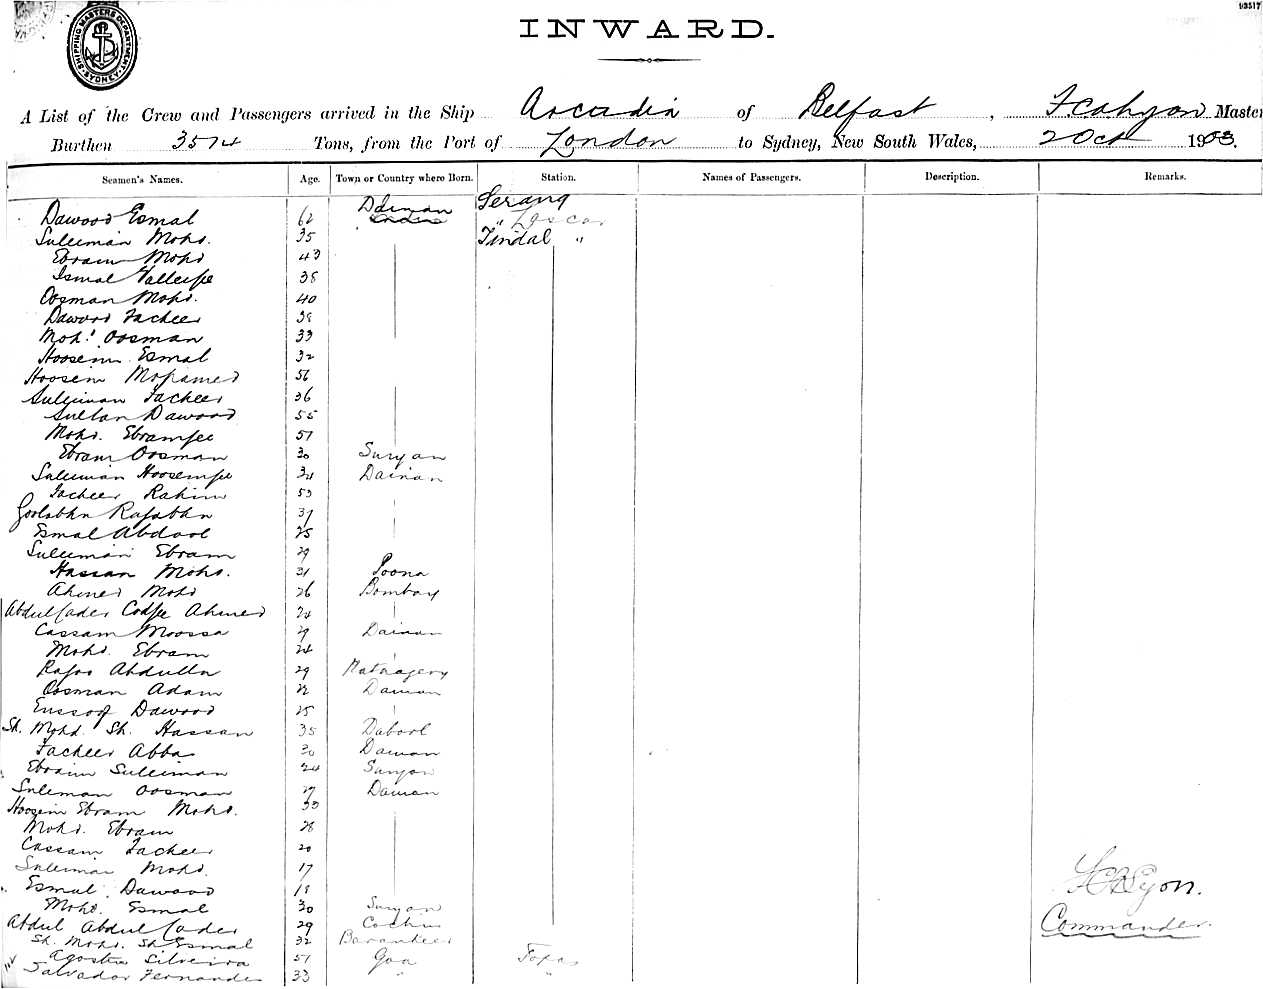 93517
SHIPPING MASTERS DEPARTMENT SYDNEY
INWARD.
A List of the Crew and Passengers arrived in the Ship Arcadia of Belfast, Master
Burthen 3574 Tons, from the Port of London to Sydney, New South Wales, 2 Oct 1903.
Seamen's Names. Age. Town or Country where Born. Station. Names of Passengers. Description. Remarks.
Dawood Esmal 62 Daman Serang
Suleiman Mohd. 35 Tindal "
Ebram Mohd 43
Ismal 38
Oosman Mohd. 40
Dawood Facheer 38
Mohd. Oosman 33
Hoosein Esmal 32
Hoosein Mohamed 56
Suleiman Facheer 36
Sultan Dawood 55
Mohd. Ebramjee 51
Ebram Oosman 30 Suryan
Suleiman Hoosenjee 34 Daman
Facheer Rahim 53
Goolabhn Rajabhn 37
Esmal Abdool 25
Suleiman Ebram 29
Hassan Mohd. 31 Poona
Ahmed Mohd 26 Bombay
Ahmed 24
Cassam Moossa 29 Daman
Mohd. Ebram 24
Rajoo Abdulla 29 Ratnagery
Oosman Adam 22 Daman
Eussoof Dawood 25
Sk. Mohd. Sk. Hassan 35 Dabool
Facheer Abba 30 Daman
Ebraim Suleiman 24 Suryan
Suleman Oosman 27 Daman
Hoosein Ebram Mohd. 33
Mohd. Ebram 28
Cassam Facheer 20
Suleiman Mohd. 17
Esmal Dawood 18
Mohd. Esmal 30 Suryan
Abdul Abdul Cader 29 Cochin
Sk. Mohd. Sk Esmal 32
Agostin Silveira 51 Goa Topas
Salvador Fernandes 33 " "
Commander.